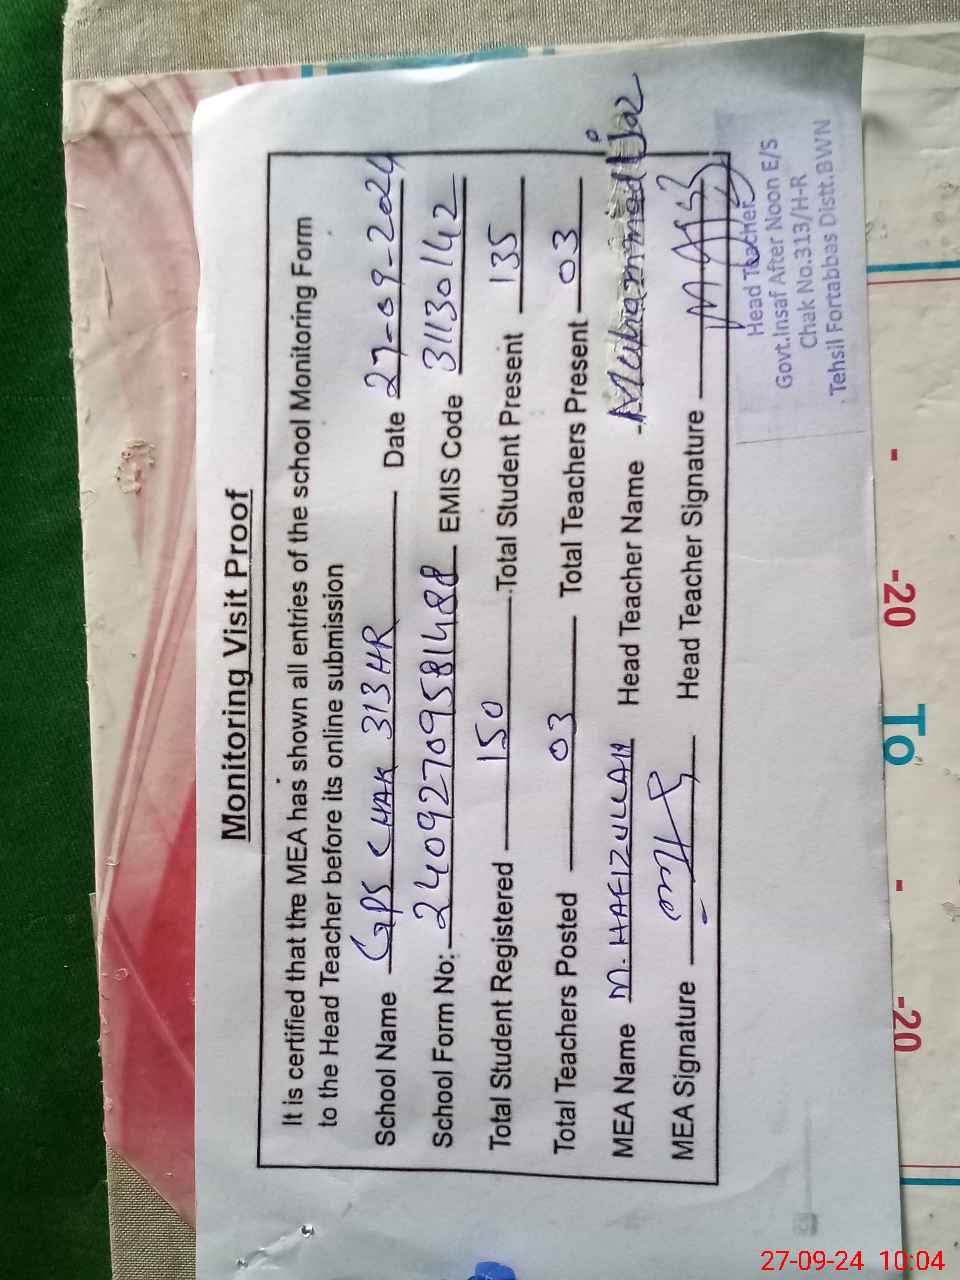 Monitoring Visit Proof
It is certified that the MEA has shown all entries of the school Monitoring Form
to the Head Teacher before its online submission
School Name GPS CHAK 313HR Date 27-09-2024
School Form No: 24092709581488 EMIS Code 31130142
Total Student Registered 150 Total Student Present 135
Total Teachers Posted 03 Total Teachers Present 03
MEA Name M. HAFIZULLAH Head Teacher Name Muhammad Ijaz
MEA Signature Head Teacher Signature
Head Teacher
Govt.Insaf After Noon E/S
Chak No.313/H-R
Tehsil Fortabbas Distt.BWN
-20 - To -20 -
27-09-24 10:04